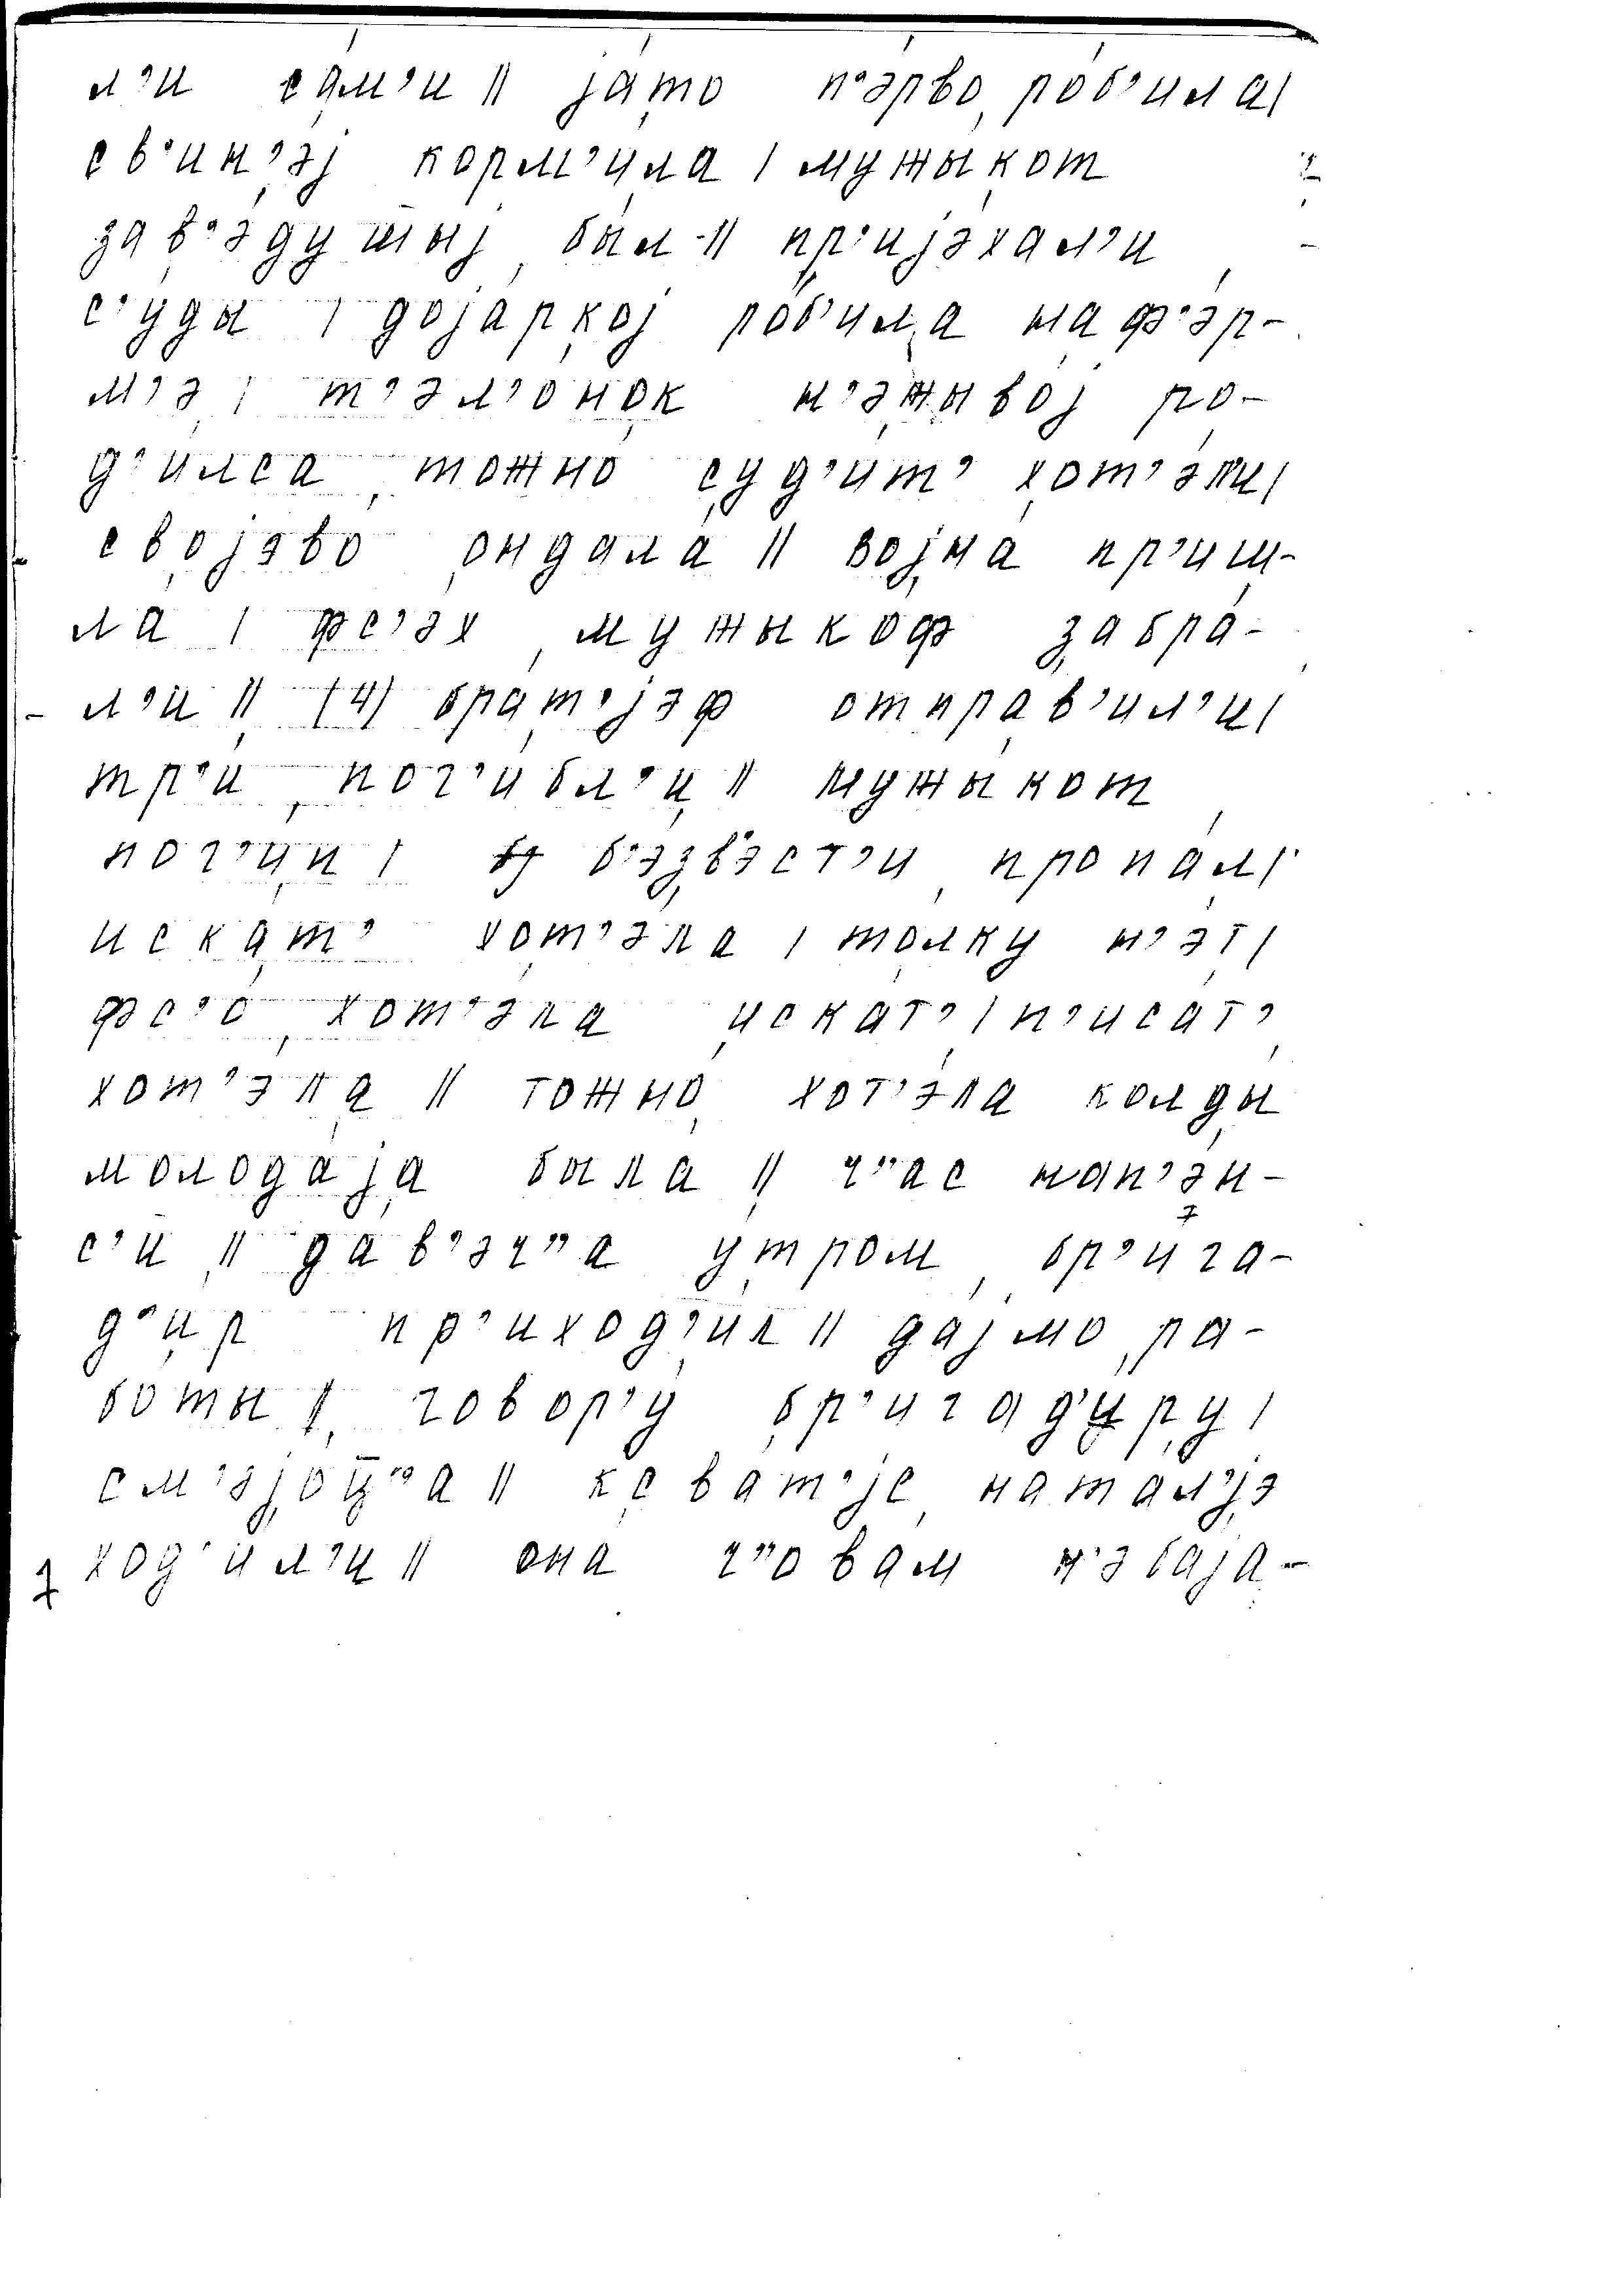 л’и са́м’и || jа́то п’э́рво ро́б’ила |
св’ин’э́j корм’и́ла | мужы́кот
зав’э́душыj бы́л || пр’иjэ́хал’и
с’у́ды | доjа́ркоj ро́б’ила на ф’э́р-
м’э | т’эл’о́нок н’эжыво́j ро-
д’и́лса тожно́ суд’и́т’ хот’э́ли |
своjэво́ ондала́ || воjна́ пр’иш-
ла́ | фс’э́х мужыко́ф забра́-
л’и || (4) бра́т’jэф отпра́в’ил’и |
тр’и́ пог’и́бл’и || мужы́кот
пог’и́п | б’эзв’э́ст’и пропа́л |
иска́т’ хот’э́ла | то́лку н’э́т |
фс’о́ хот’э́ла иска́т’ | п’иса́т’
хот’э́ла || тожно́ хот’э́ла колды́
молода́jа была́ || ч”ас нап’э́н-
с’и || да́в’эч”а у́тром бр’ига-
д’и́р пр’иход’и́л || да́jмо ра-
бо́ты || говор’у́ бр’игад’и́ру |
см’эjо́ц”а || кс ва́т’jе ната́л’jэ
ход’и́л’и || она́ ч”о ва́м н’эба́jа-